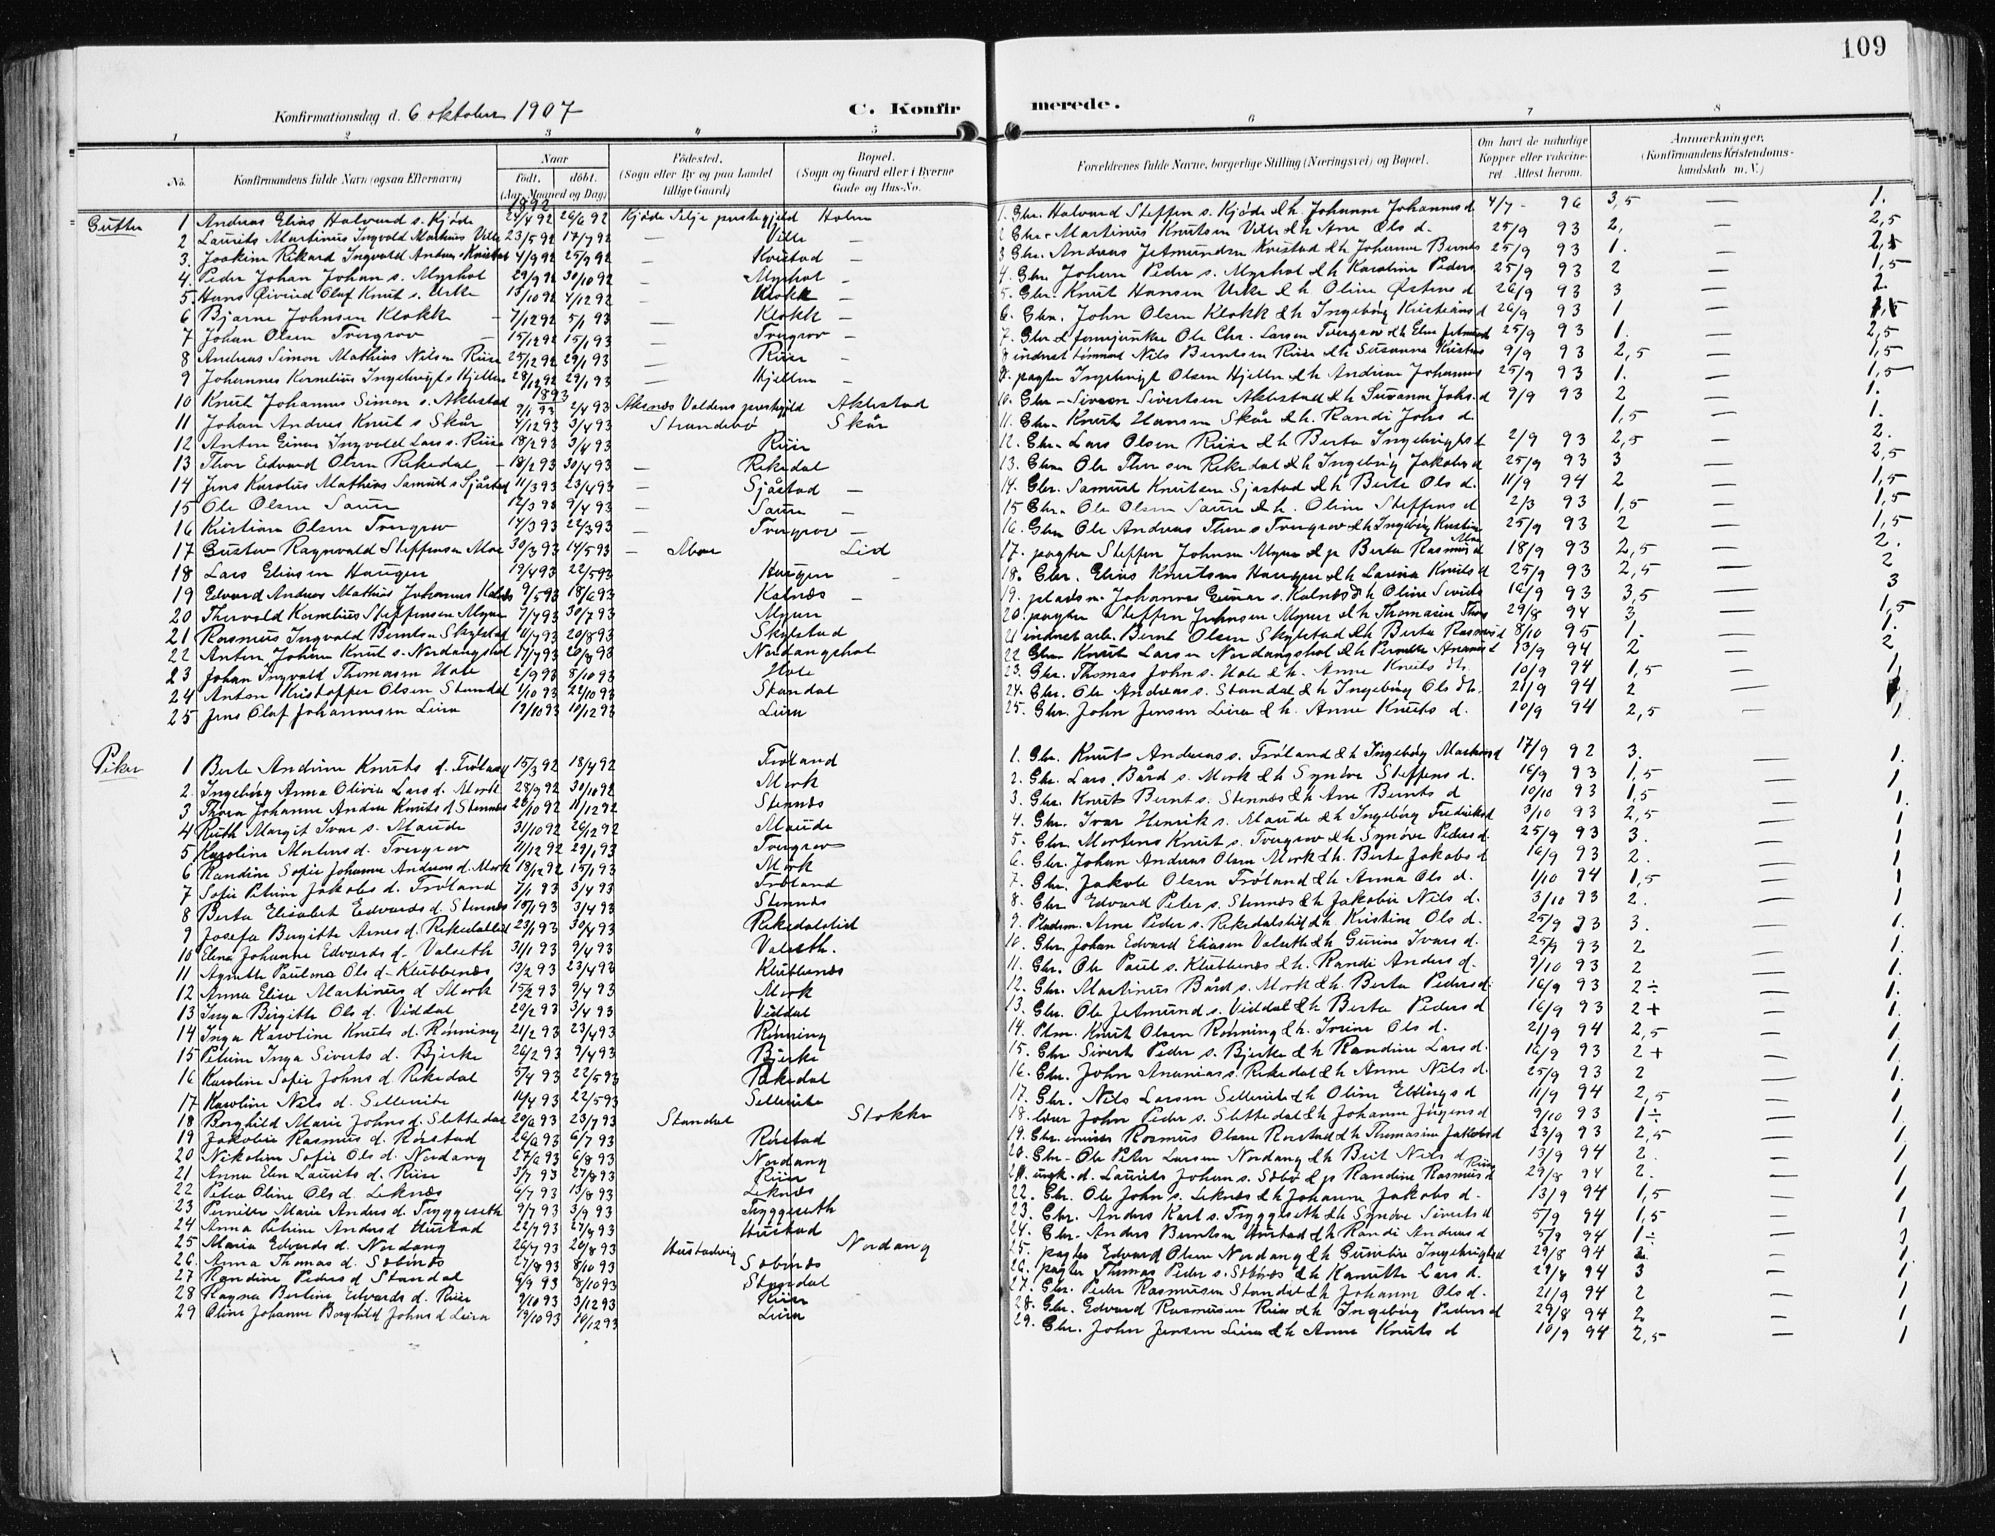 109
Konfirmationsdag d. 6 oktober 1907
C. Konfirmerede.
1 2 3 4 5 6 7 8
No.
Konfirmandens fulde Navn (ogsaa Efternavn)
Naar
Født. døbt.
(Aar, Maaned og Dag)
Fødested.
(Sogn eller By og paa Landet tillige Gaard)
Bopæl.
(Sogn og Gaard eller i Byerne Gade og Hus-No.
Forældrenes fulde Navne, borgerlige Stilling (Næringsvei) og Bopæl.
Om havt de naturlige Kopper eller vakcineret Attest herom.
Anmærkninger,
(Konfirmandens Kristendomskundskab m. V.)
1892
Gutter 1 Andreas Elias Halvard s. Kjøde 24/4 92 26/6 92 Kjøde Selje prestegjeld Holen 1. Gbr. Halvard Steffen s. Kjøde & h. Johanne Johannes d 4/7 - 96 3,5 — 1.
2 Laurits Martinus Ingvold Martinus Ville 23/5 92 17/7 92 — Ville — 2 Gbr. Martinus Knutsen Ville & h. Ane Ols d. 25/9 93 2, — 2,5
3. Joakim Rikard Ingvald Andreas Kvistad 4/9 92 25/9 92 — Kvistad — 3 Gbr. Andreas Jetmundsen Kvistad & h. Johanne Bernts 25/9 93 1. —
4. Peder Johan Johan s. Myrhol 29/9 92 30/10 92 — Myrhol — 4. Gbr. Johan Peder s. Myrhol & h. Karoline Peders 25/9 93 2 — 1,5
5. Hans Øivind Olaf Knut s. Urke 13/10 92 4/12 92 — Klokk — 5. Gbr. Knut Hansen Urke & h. Oline Østens d 26/9 93 3 — 2.
6 Bjarne Johnsen Klokk 7/12 92 5/1 93 — Klokk — 6. Gbr. John Olsen Klokk & h. Ingebørg Kristians d 26/9 93 1 —
7 Johan Olsen Tvergrov 15/12 92 15/1 93 — Tvergrov — 7. Gbr & fanejunker Ole Chr. Larsen Tvergrov & h. Eline Jetmunds 25/9 93 1. — 2,5
8 Andreas Simon Mathias Nilsen Riise 25/12 92 29/1 93 — Riise — 8 indrest tømmd Nils Berntsen Riise & h Susanna Kristens 9/9 93 2,5 — 1,5
9 Johannes Kornelius Ingebrigt s Hjellen 28/12 92 29/1 93 — Hjellen — 9. pagter Ingebrigt Olsen Hjellen & h Andrine Johannes 25/9 93 1. — 1,5
1893
10 Knut Johannes Simon s. Aklestad 9/1 93 2/4 93 Aknes Voldens prestegjeld Aklestad 10. Gbr - Simon Sivertsen Aklestad & h Susanne Johs. d 9/9 93 2 — 1.
11 Johan Andreas Knut s Skår 4/12 93 3/4 93 Strandebø Skår 11. Gbr. Knut Hansen Skår & h. Randi Johs d. 1,5 — 1.
12 Anton Einar Ingvold Lars s. Riise 18/2 93 3/4 93 Riise 12. Gbr. Lars Olsen Riise & h. Berta Ingebrigts d 2/9 93 2,5 — 2.
13 Thor Edvard Olsen Rekedal 18/2 93 30/4 93 — Rekedal 13. Gbr. Ole Thorsen Rekedal & h Ingebørg Jakobs d 25/9 93 3 — 2,5
14 Jens Karolus Mathias Samuel s Sjåstad 11/3 93 23/4 93 — Sjåstad — 14. Gbr. Samuel Knutsen Sjåstad & h Berte Ols d. 11/9 94 2 — 1,5
15 Ole Olsen Saure 12/3 93 9/4 93 — Saure — 15 Gbr. Ole Olsen Saure & h. Oline Steffens d 2/3 93 1,5 — 1,5
16 Kristian Olsen Tvergrov 17/3 93 22/3 93 — Tvergrov — 16. Gbr. Ole Andreas Thor s Tvergrov & h Ingebørg Kristens 25/9 93 2 — 1,5
17 Gustav Raynvald Steffensen Moe 30/3 93 14/5 93 — Moe Lid 17. pagter Steffen Johnsen Myren & p Berta Rasmus d Moe 18/9 93 2,5 — 2.
18 Lars Eliassen Haugen 19/4 93 22/5 93 Haugen - 18. Gbr. Elias Knutsen Haugen & h Lavine Knuts d 25/9 93 2,5 — 2
19 Edvard Andreas Mathias Johannes Kalnes 9/5 93 18/6 93 Kalnæs — 19. pladsm. Johannes Gunar s. Kalnæs & h Oline Siverts 16/9 93 3,5 — 3
20 Thorvald Kornelius Steffensen Myren 7/7 93 30/7 93 Myren 20. pagter Steffen Johnsen Myren & h Thomasine Thors 29/8 94 3, — 1,5
21 Rasmus Ingvald Berntsen Skylstad 11/7 93 20/8 93 Skylstad 21 indrest arb. Bernt Olsen Skylstad & h Berta Rasmus d 8/10 95 1. — 1.
22 Anton Johan Knut s. Nordangshol 17/7 93 20/8 93 Nordangshol 22 Gbr Knut Larsen Nordangshol & h Pernille Annanias d 13/9 94 2 — 2
23 Johan Ingvald Thomassen Hole 2/9 93 8/10 93 Hole 23. Gbr. Thomas John s. Hole & h. Anne Knuts dtr. 10/9 94 1,5 — 1,
24 Anton Kristoffer Olsen Standal 1/10 93 22/10 93 Standal 24. Gbr. Ole Andreas s. Standal & h Ingebørg Ols dtr. 21/9 94 2 —
25 Jens Olaf Johannessen Leira 13/10 93 10/12 93 Leira 25. Gbr. John Jensen Leira & h. Anne Knuts d. 10/9 94 2,5 — 1
Piker 1 Berte Andrine Knuts d. Frøland 15/3 92 18/4 92 Frøland 1. Gbr. Knut Andreas s. Frøland & h Ingebørg Markus d 17/9 92 3. — 1.
2. Ingebørg Anna Olivie Lars d. Mork 28/9 92 30/10 92 Mork 2. Gbr. Lars Bård s. Mork & h Synøve Steffens d. 16/9 93 1,5 — 1
3 Thora Johanne Andrea Knuts d Stennes 20/10 92 11/12 92 Stennes 3. Gbr. Knut Bernt s. Stennes & h Ane Bernts d 10/10 93 1,5 — 1.
4 Ruth Margit Ivar s. Maude 31/10 92 26/12 92 Maude 4. Gbr. Ivar Henrik s. Maude & h Ingebørg Fredriks d 3/10 93 2,5 — 1
5 Karoline Martens d. Tvergrov 11/12 92 29/1 93 Tvergrov 5. Gbr. Mortens Knut s. Tvergrov & h Synøve Peders d. 25/9 93 3. — 1
6 Randine Sofie Johanne Andreas d. Mork 18/12 92 15/1 93 Mork 6. Gbr. Johan Andreas Olsen Mork & h. Berta Jakobs d 16/9 93 2. — 1
7 Sofie Petrine Jakobs d. Frøland 7/1 93 3/4 93 Frøland 7. Gbr. Jakob Olsen Frøland & h Anna Ols d. 1/10 94 1,5 — 1
8 Berta Elisabet Edvards d. Stennes 18/1 93 3/4 93 Stennes 8. Gbr Edvard Peter s. Stennes & h Jakobie Nils d. 3/10 93 2. — 1
9 Josefa Birgitte Arnes d. Rekedalslid 23/1 93 30/4 93 Rekedalslid 9. Pladsm. Arne Peder s. Rekedalslid & h Kristine Ols d. 25/9 93 3. — 1.
10 Elene Johanne Edvards d. Valseth 31/1 93 9/4 93 Valseth. 10. Gbr. Johan Edvard Eliasen Valseth & h Gurine Ivars d. 25/9 93 2 — 1
11 Agnethe Paulina Ols d. Klubbenæs 13/2 93 23/4 93 Klubbenæs 11. Gbr. Ole Paul s. Klubbenæs & h. Randi Anders d. 9/10 93 2 — 1.
12 Anna Elise Martinus d Mork 15/2 93 9/4 93 Mork 12. Gbr. Martinus Bård s. Mork & h. Berta Peders d. 16/9 93 2 ÷ — 1.
13 Inga Birgitte Ols d. Viddal 20/2 93 3/4 93 Viddal 13. Gbr. Ole Jetmund s. Viddal & h Berta Peders d 16/9 93 2 + — 1
14 Inga Karoline Knuts d. Rønning 21/2 93 23/4 93 Rønning 14. Plm. Knut Olsen Rønning & h. Ivrine Ols d. 21/9 94 2,5 — 1.
15 Petrine Inga Siverts d. Bjerke 26/2 93 9/4 93 Bjerke 15. Gbr Sivert Peder s. Bjerke & h Randine Lars d. 16/9 93 2 + — 1.
16 Karoline Sofie Johns d. Rekedal 5/4 93 22/5 93 Rekedal 16. Gbr. John Ananias s. Rekedal & h Anne Nils d. 25/9 93 2 — 1
17 Karoline Nils d. Sellereite 14/4 93 22/5 93 Sellereite 17. Gbr. Nils Larsen Sellereite & h Oline Eldings d 11/9 94 2,5 — 1
18 Borghild Marie Johns d. Slettedal 20/6 93 23/7 93 Standal Stokke 18. lærer John Peder s. Slettedal & h Johanne Jørgens d 9/10 93 1 ÷ —
19 Jakobie Rasmus d. Rørstad 26/6 93 6/7 93 Rørstad 19. Gbr. Rasmus Olsen Rørstad & h Thomasine Jakobs d 23/9 93 2,5 — 1
20 Nikoline Sofie Ols d. Nordang 27/6 93 6/8 93 Nordang 20. Gbr - Ole Peter Larsen Nordang & h Brit Nils d 13/9 94 2. — 1
21 Anna Elen Laurits d. Riise 3/7 93 27/8 93 Riise 21. ungk. d. Laurits Johan s. Søbø & p Randine Rasmus d Riise 29/8 94 2. — 1
22 Petra Oline Ols d. Leknæs 4/7 93 13/8 93 Leknæs 22. Gbr. Ole John s. Leknæs & h Johanne Jakobs d. 13/9 94 1,5 — 1
23 Pernille Marie Anders d. Tryggeseth 9/7 93 3/9 93 Tryggeseth 23. Gbr. Anders Karl s. Tryggeseth & h Synøve Siverts d 5/9 94 1,5 — 1
24 Anna Petrine Anders d Hustad 22/7 93 27/8 93 Hustad 24. Gbr. Anders Berntsen Hustad & h Randi Andreas d 5/9 94 1 ÷ —
25 Maria Edvards d. Nordang 26/7 93 20/8 93 Hustadvig Nordang 25. pagter Edvard Olsen Nordang & h Gunilie Ingebrigts d 29/8 94 2. — 1
26. Anna Thomas d. Søbnæs 27/8 93 8/10 93 Søbnæs 26. pagter Thomas Peder s. Søbnæs & h Kanutte Lars d. 29/8 94 3 — 1
27 Randine Peders d Standal 6/9 93 8/10 93 Standal 27. Gbr. Peder Rasmussen Standal & h Johanne Ols d. 21/9 94 2 — 1
28 Ragna Berline Edvards d. Riise 9/10 93 3/12 93 Riise 28. Gbr. Edvard Rasmusen Riise & h Ingebørg Peders d 29/8 94 2 — 1
29 Oline Johanne Borghild Johns d Leira 19/10 93 10/12 93 Leira 29. Gbr. John Jensen Leira & h Anne Knuts d 10/9 94 2,5 — 1